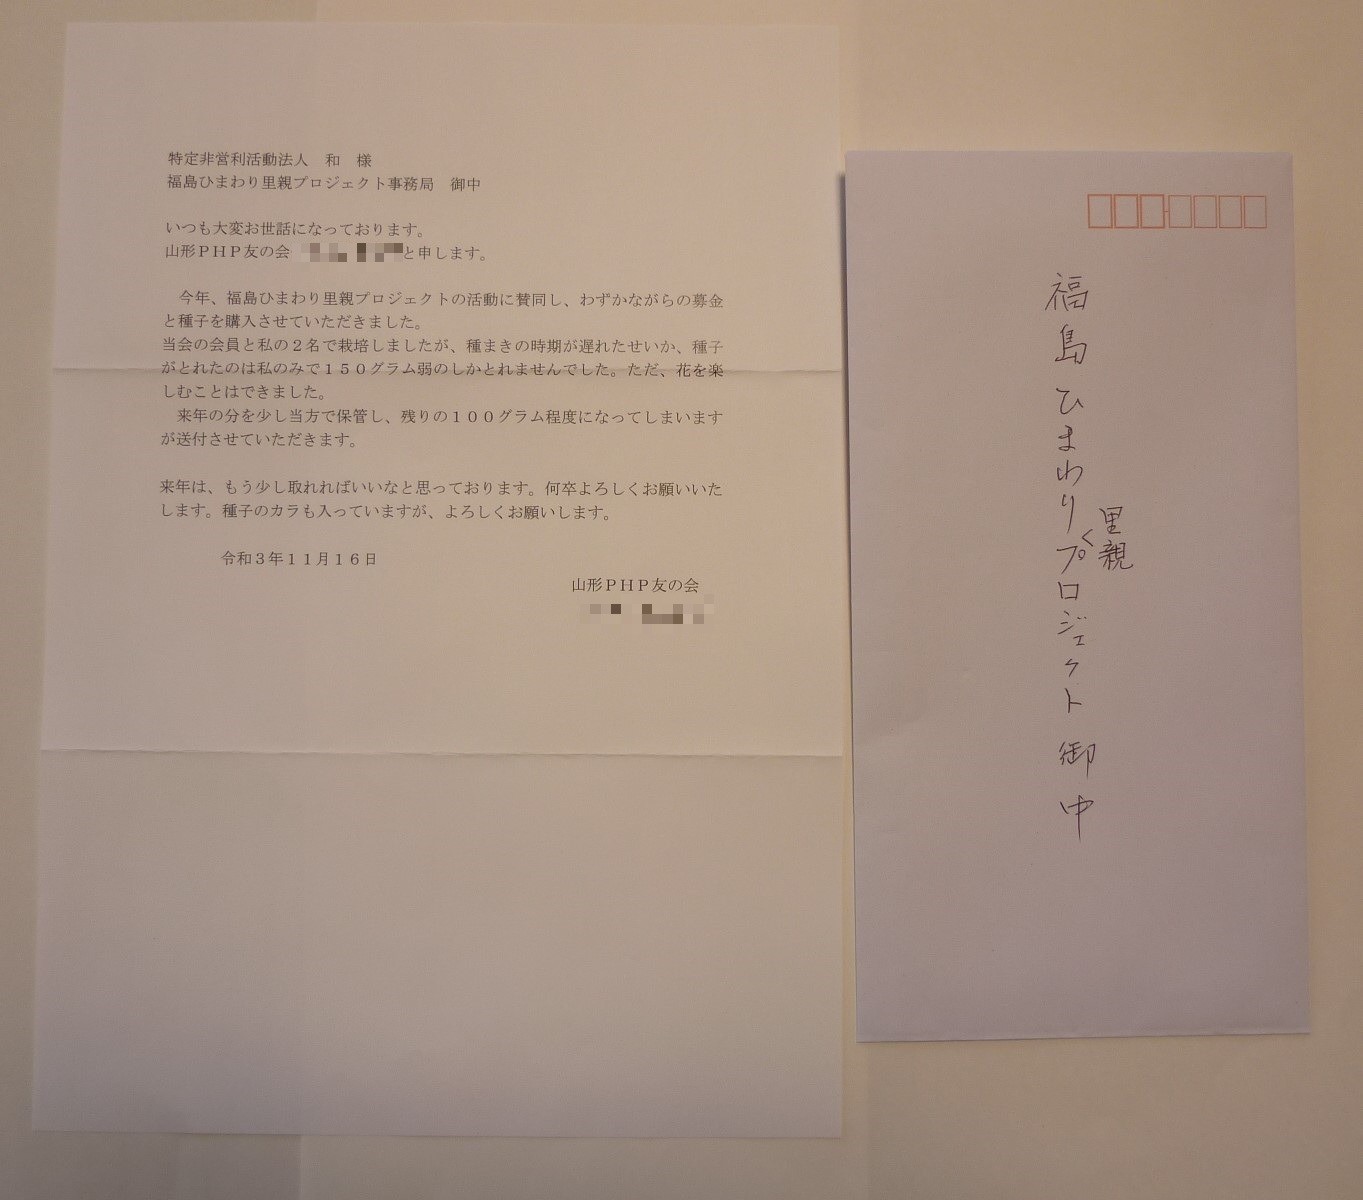 特定非営利活動法人　和　様
福島ひまわり里親プロジェクト事務局　御中
いつも大変お世話になっております。
山形ＰＨＰ友の会　と申します。
　今年、福島ひまわり里親プロジェクトの活動に賛同し、わずかながらの募金
と種子を購入させていただきました。
当会の会員と私の２名で栽培しましたが、種まきの時期が遅れたせいか、種子
がとれたのは私のみで１５０グラム弱のしかとれませんでした。ただ、花を楽
しむことはできました。
　来年の分を少し当方で保管し、残りの１００グラム程度になってしまいます
が送付させていただきます。
来年は、もう少し取れればいいなと思っております。何卒よろしくお願いいた
します。種子のカラも入っていますが、よろしくお願いします。
令和３年１１月１６日
山形ＰＨＰ友の会
福島ひまわり里親プロジェクト　御中